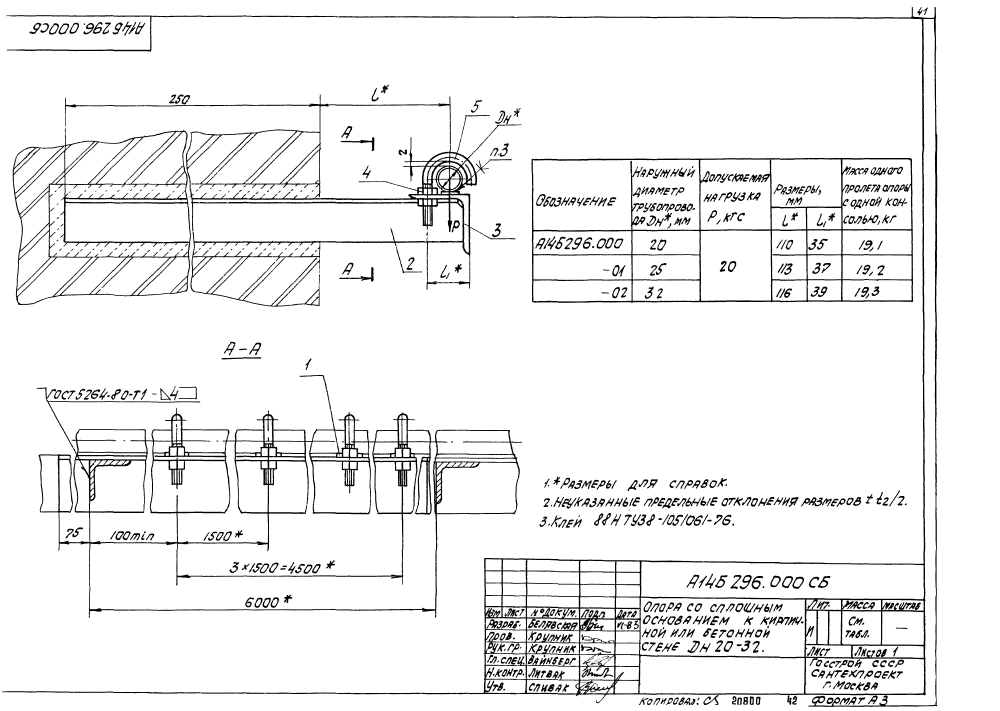 41
А14Б 296.000СБ
250
l*
А
2
5
Dн*
п.3
4
Р
3
А
2
l₁*
Обозначение
Наружный диаметр трубопрово-да Dн*, мм
Допускаемая нагрузка Р, кгс
Размеры, мм
l*
l₁*
Масса одного пролета опоры с одной кон-солью, кг
А14Б296.000
20
20
110
35
19,1
-01
25
113
37
19,2
-02
32
116
39
19,3
А-А
1
ГОСТ 5264-80-Т1-⊿4
75
100min
1500*
3×1500=4500*
6000*
1.*Размеры для справок.
2. Неуказанные предельные отклонения размеров ± t2/2.
3. Клей 88Н ТУ38-1051061-76.
А14Б 296.000 СБ
Изм
Лист
N°докум.
Подп.
Дата
Разраб.
Белявская
Пров.
Крупник
Рук.гр.
Крупник
Гл.спец.
Вайнберг
Н.контр.
Литвак
Утв.
Спивак
Опора со сплошным
основанием к кирпич-
ной или бетонной
стене Dн 20-32.
Лит.
Масса
Масштаб
И
См.
табл.
—
Лист
Листов 1
Госстрой СССР
Сантехпроект
г. Москва
Копировал:
20800
42
Формат А3